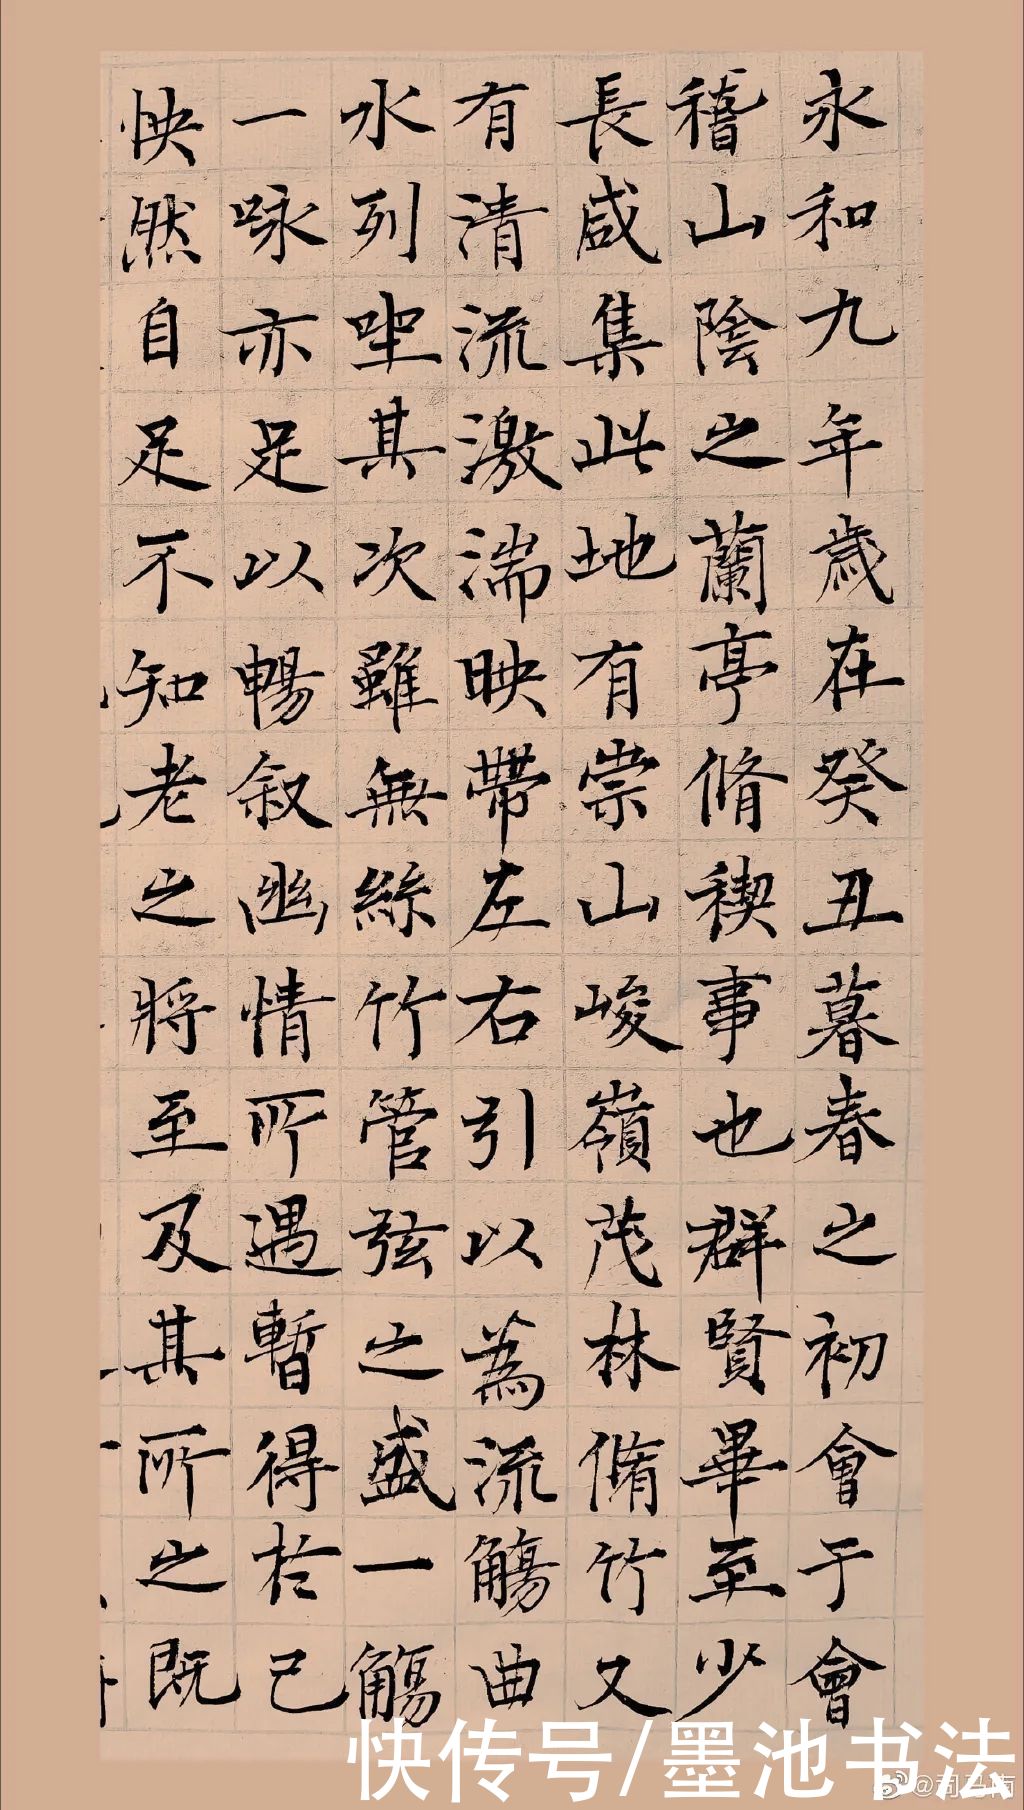 永和九年歲在癸丑暮春之初會于會
稽山陰之蘭亭脩稧事也群賢畢至少
長咸集此地有崇山峻嶺茂林脩竹又
有清流激湍映帶左右引以為流觴曲
水列坐其次雖無絲竹管弦之盛一觴
一咏亦足以暢叙幽情所遇暫得於己
快然自足不知老之將至及其所之既
快传号/墨池书法
@司马南